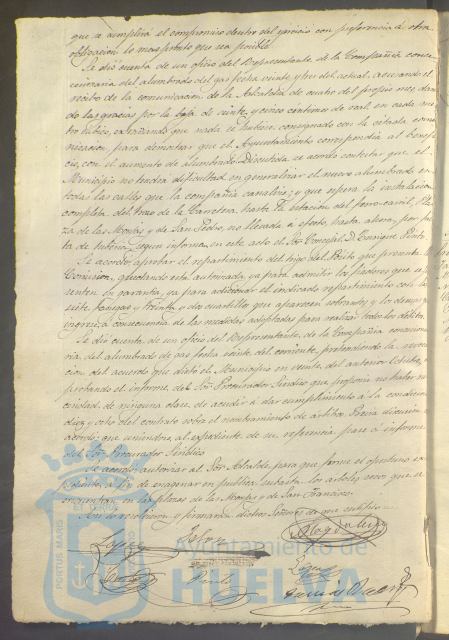 que se cumplirá el compromiso dentro del ejercicio con preferencia á otra
obligacion lo mas pronto que sea posible
Se dió cuenta de un oficio del Representante de la Compañia conce
sionaria del alumbrado del gas fecha veinte y tres del actual, acusando el
recibo de la comunicacion de la Alcaldia de cuatro del propio mes, dan
do las gracias por la baja de veinte y cinco centimos de real en cada me
tro cubico, extrañando que nada se hubiese consignado con la citada comu
nicacion para demostrar que el Ayuntamiento correspondia al benefi
cio, con el aumento de alumbrado. Discutida se acordó contestar que el
Municipio no tendrá dificultad en generalizar el nuevo alumbrado en
todas las calles que la compañia canalice; y que espera la instalacion
completa del trozo de la Carretera hasta la estacion del ferro-carril, Pla
za de las Monjas y de San Pedro, no llevada á efecto, hasta ahora, por fal
ta de tuberia, segun informa en este acto el Sor. Concejal D. Enrique Pinto.
Se acordó aprobar el repartimiento del trigo del Pósito que presenta la
Comision, quedando esta autorizada, ya para admitir los fiadores que se pre
senten en garantia, ya para adicionar el indicado repartimiento con las
siete fanegas y treinta y dos cuartillos que aparecen sobrantes y los demas que
ingresen á consecuencia de las medidas adoptadas para realizar todos los débitos
Se dió cuenta de un oficio del Representante de la Compañia concesiona
ria del alumbrado de gas fecha veinte del corriente, pretendiendo la revoca
cion del acuerdo que dictó el Municipio en veinte del anterior Octubre, a
probando el informe del Sor. Procurador Sindico que proponia no haber ne
cesidad de ninguna clase de acudir á dar cumplimiento á la condicion
diez y ocho del contrato sobre el nombramiento de arbitros. Previa discusion se
acordó que uniendose al expediente de su referencia pase á informe
del Sor. Procurador Sindico
Se acordó autorizar al Sor. Alcalde para que forme el oportuno ex
pediente á fin de enagenar en publica subasta los arboles secos que se
encuentran en las plazas de las Monjas y de San Francisco.
Asi lo resolvieron y firmaron dichos Señores de que certifico
Lopez
Pinto
Lopez
PORTUS MARIS
Ayuntamiento de
HUELVA